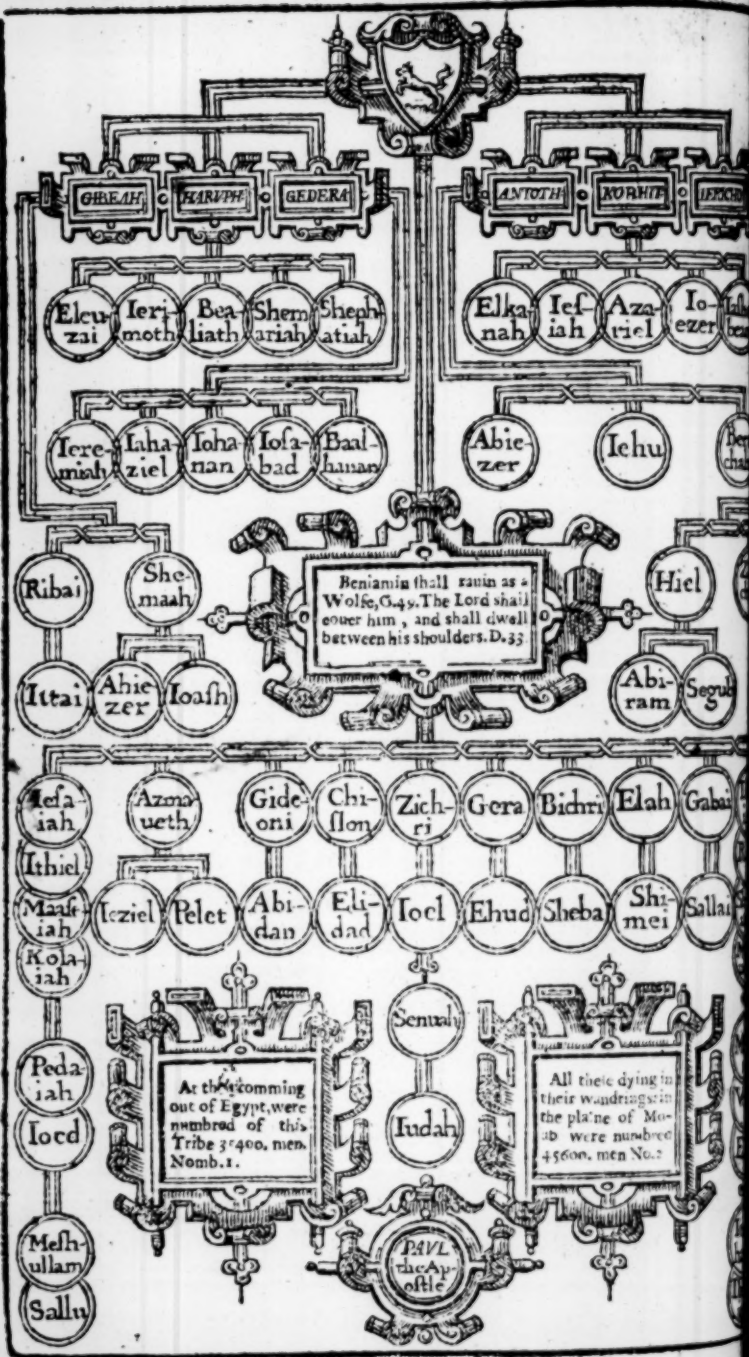 GIBEAH HARVPH GEDERA ANTOTH KORHIT
Eleu-
zai
Ieri-
moth
Bea-
liath
Shem
ariah
Sheph-
atiah
Elka-
nah
Ies-
iah
Aza-
riel
Io-
ezer
Iere-
miah
Iaha-
ziel
Ioha-
nan
Iosa-
bad
Baal-
hanan
Abie-
zer
Iehu
Ribai
She-
maah
Ittai
Ahie-
zer
Ioash
Beniamin shall rauin as a
Wolfe, G.49. The Lord shall
couer him, and shall dwell
between his shoulders. D.33
Hiel
Abi-
ram
Segub
Iesa-
iah
Azma-
ueth
Gide-
oni
Chi-
slon
Zich-
ri
Gera
Bichri
Elah
Gabai
Ithiel
Maase-
iah
Ieziel
Pelet
Abi-
dan
Eli-
dad
Ioel
Ehud
Sheba
Shi-
mei
Sallai
Kola-
iah
Senuah
Peda-
iah
Ioed
At their comming
out of Egypt, were
numbred of this
Tribe 35400. men.
Nomb. 1.
Iudah
All these dying in
their wandrings: in
the plaine of Mo-
ab were numbred
45600. men No.
Mesh-
ullam
Sallu
PAVL
the Ap-
ostle